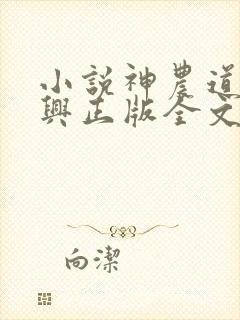 小說神農道
興正版全文
向潔